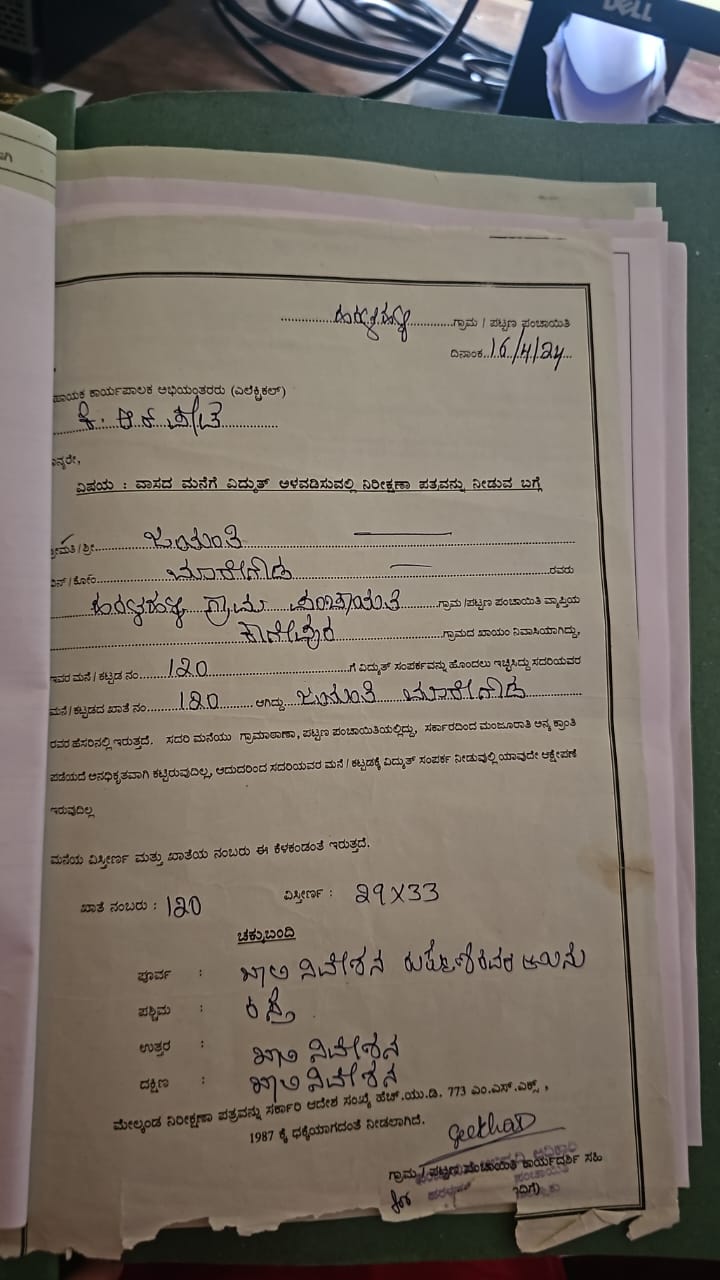 DELL
ಗಿ
ಹರಳಹಳ್ಳಿ ಗ್ರಾಮ / ಪಟ್ಟಣ ಪಂಚಾಯಿತಿ
ದಿನಾಂಕ 16/4/24
ಹಾಯಕ ಕಾರ್ಯಪಾಲಕ ಅಭಿಯಂತರರು (ಎಲೆಕ್ಟ್ರಿಕಲ್)
ಕೆ. ಆರ್ ಪೇಟೆ
ನ್ಯರೇ,
ವಿಷಯ : ವಾಸದ ಮನೆಗೆ ವಿದ್ಯುತ್ ಅಳವಡಿಸುವಲ್ಲಿ ನಿರೀಕ್ಷಣಾ ಪತ್ರವನ್ನು ನೀಡುವ ಬಗ್ಗೆ
ಶ್ರೀಮತಿ / ಶ್ರೀ ಜಯಂತಿ
ಬಿನ್ / ಕೋಂ ಮಾರೇಗೌಡ ರವರು
ಹರಳಹಳ್ಳಿ ಗ್ರಾಮ ಪಂಚಾಯಿತಿ ಗ್ರಾಮ /ಪಟ್ಟಣ ಪಂಚಾಯಿತಿ ವ್ಯಾಪ್ತಿಯ
ಗ್ರಾಮದ ಖಾಯಂ ನಿವಾಸಿಯಾಗಿದ್ದು,
ಇವರ ಮನೆ / ಕಟ್ಟಡ ನಂ 120 ಗೆ ವಿದ್ಯುತ್ ಸಂಪರ್ಕವನ್ನು ಹೊಂದಲು ಇಚ್ಛಿಸಿದ್ದು ಸದರಿಯವರ
ಮನೆ / ಕಟ್ಟಡದ ಖಾತೆ ನಂ 120 ಆಗಿದ್ದು ಜಯಂತಿ ಮಾರೇಗೌಡ
ರವರ ಹೆಸರಿನಲ್ಲಿ ಇರುತ್ತದೆ. ಸದರಿ ಮನೆಯು ಗ್ರಾಮಾಠಾಣಾ, ಪಟ್ಟಣ ಪಂಚಾಯಿತಿಯಲ್ಲಿದ್ದು, ಸರ್ಕಾರದಿಂದ ಮಂಜೂರಾತಿ ಅನ್ಯ ಕ್ರಾಂತಿ
ಪಡೆಯದೆ ಅನಧಿಕೃತವಾಗಿ ಕಟ್ಟಿರುವುದಿಲ್ಲ, ಆದುದರಿಂದ ಸದರಿಯವರ ಮನೆ / ಕಟ್ಟಡಕ್ಕೆ ವಿದ್ಯುತ್ ಸಂಪರ್ಕ ನೀಡುವುಲ್ಲಿ ಯಾವುದೇ ಆಕ್ಷೇಪಣೆ
ಇರುವುದಿಲ್ಲ
ಮನೆಯ ವಿಸ್ತೀರ್ಣ ಮತ್ತು ಖಾತೆಯ ನಂಬರು ಈ ಕೆಳಕಂಡಂತೆ ಇರುತ್ತದೆ.
ಖಾತೆ ನಂಬರು : 120 ವಿಸ್ತೀರ್ಣ : 29X33
ಚಕ್ಕುಬಂದಿ
ಪೂರ್ವ : ಖಾಲಿ ನಿವೇಶನ
ಪಶ್ಚಿಮ : ರಸ್ತೆ
ಉತ್ತರ : ಖಾಲಿ ನಿವೇಶನ
ದಕ್ಷಿಣ : ಖಾಲಿ ನಿವೇಶನ
ಮೇಲ್ಕಂಡ ನಿರೀಕ್ಷಣಾ ಪತ್ರವನ್ನು ಸರ್ಕಾರಿ ಆದೇಶ ಸಂಖ್ಯೆ ಹೆಚ್.ಯು.ಡಿ. 773 ಎಂ.ಎಸ್.ಎಕ್ಸ್,
1987 ಕ್ಕೆ ಧಕ್ಕೆಯಾಗದಂತೆ ನೀಡಲಾಗಿದೆ.
ಗ್ರಾಮ / ಪಟ್ಟಣ ಪಂಚಾಯಿತಿ ಕಾರ್ಯದರ್ಶಿ ಸಹಿ